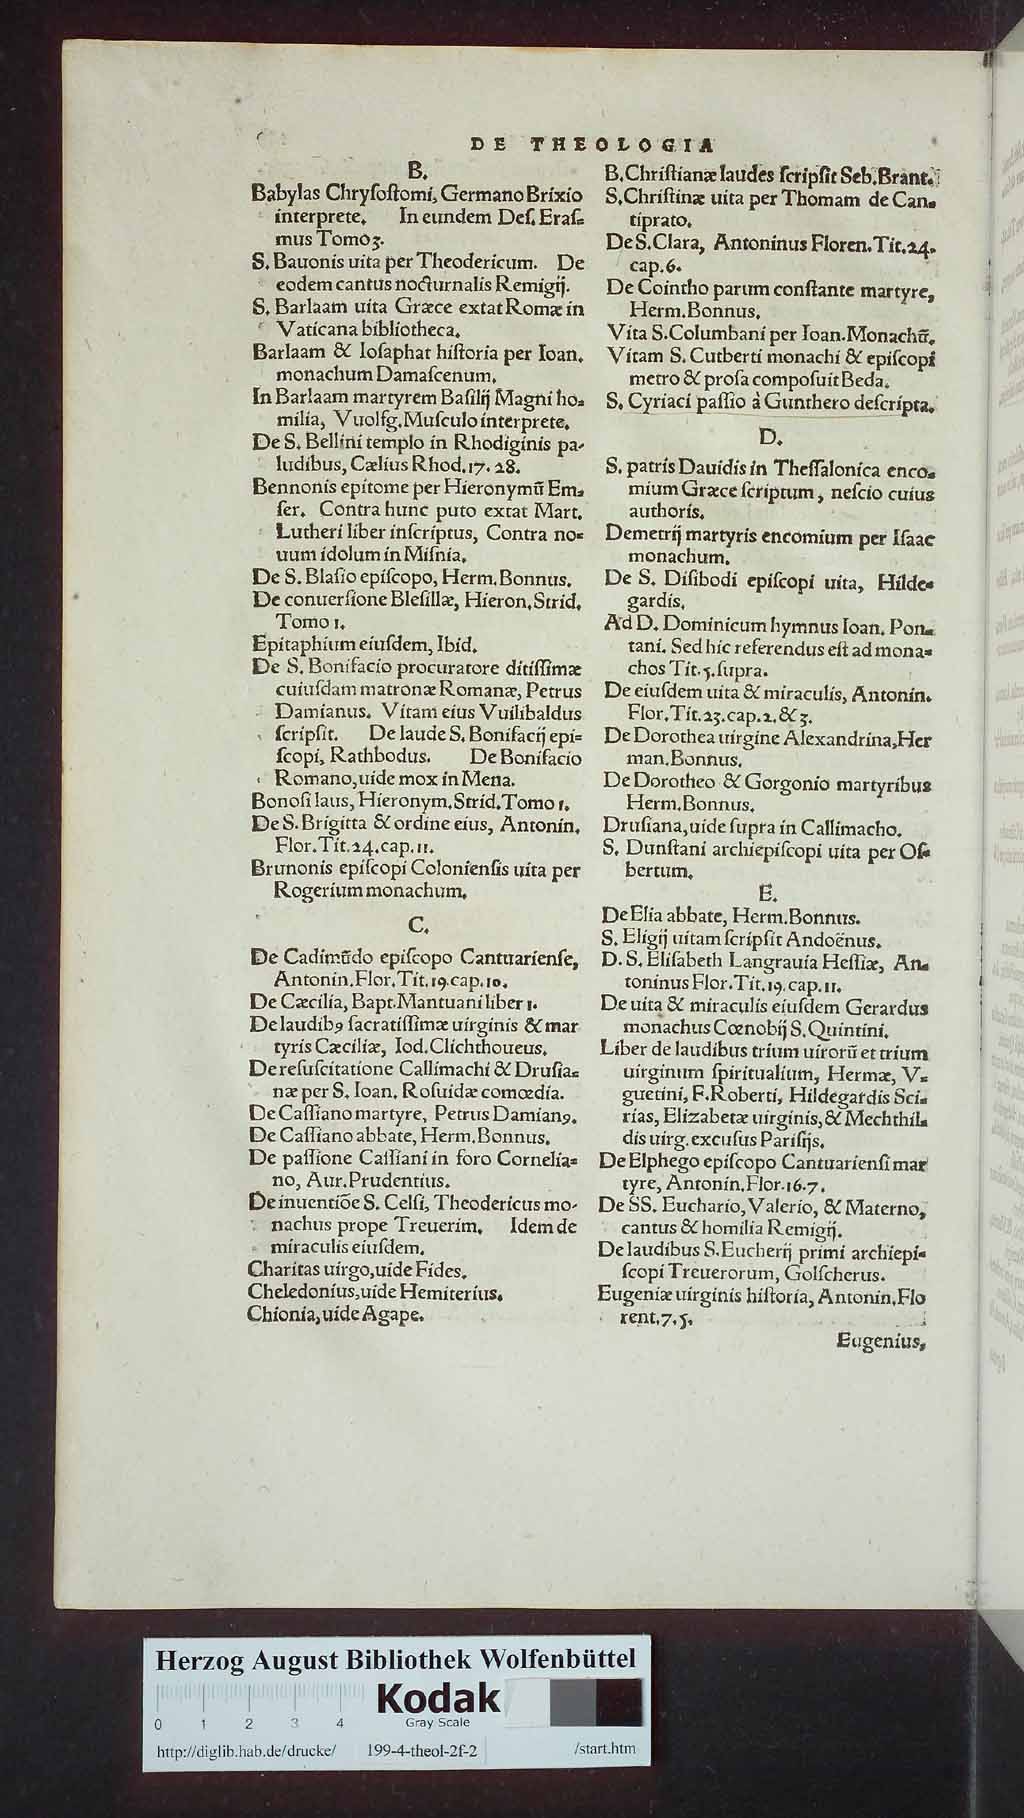 DE THEOLOGIA
B.
Babylas Chryſoſtomi, Germano Brixio
interprete. In eundem Deſ. Eraſ=
mus Tomo 3.
S. Bauonis uita per Theodericum. De
eodem cantus nocturnalis Remigij.
S. Barlaam uita Græce extat Romæ in
Vaticana bibliotheca.
Barlaam & Ioſaphat hiſtoria per Ioan.
monachum Damaſcenum.
In Barlaam martyrem Baſilij Magni ho=
milia, Vuolfg. Muſculo interprete.
De S. Bellini templo in Rhodiginis pa-
ludibus, Cælius Rhod. 17. 28.
Bennonis epitome per Hieronymū Em=
ſer. Contra hunc puto extat Mart.
Lutheri liber inſcriptus, Contra no=
uum idolum in Miſnia.
De S. Blaſio epiſcopo, Herm. Bonnus.
De conuerſione Bleſillæ, Hieron. Strid.
Tomo 1.
Epitaphium eiuſdem, Ibid.
De S. Bonifacio procuratore ditiſſimæ
cuiuſdam matronæ Romanæ, Petrus
Damianus. Vitam eius Vuilibaldus
ſcripſit. De laude S. Bonifacij epi=
ſcopi, Rathbodus. De Bonifacio
Romano, uide mox in Mena.
Bonoſi laus, Hieronym. Strid. Tomo 1.
De S. Brigitta & ordine eius, Antonin.
Flor. Tit. 24. cap. 11.
Brunonis epiſcopi Colonienſis uita per
Rogerium monachum.
C.
De Cadimūdo epiſcopo Cantuarienſe,
Antonin. Flor. Tit. 19. cap. 10.
De Cæcilia, Bapt. Mantuani liber 1.
De laudibꝰ ſacratiſſimæ uirginis & mar
tyris Cæciliæ, Iod. Clichthoueus.
De reſuſcitatione Callimachi & Druſia=
næ per S. Ioan. Roſuidæ comœdia.
De Caſſiano martyre, Petrus Damianꝰ.
De Caſſiano abbate, Herm. Bonnus.
De paſſione Caſſiani in foro Cornelia=
no, Aur. Prudentius.
De inuentiōe S. Celſi, Theodericus mo-
nachus prope Treuerim. Idem de
miraculis eiuſdem.
Charitas uirgo, uide Fides.
Cheledonius, uide Hemiterius.
Chionia, uide Agape.
B. Chriſtianæ laudes ſcripſit Seb. Brant.
S. Chriſtinæ uita per Thomam de Can=
tiprato.
De S. Clara, Antoninus Floren. Tit. 24.
cap. 6.
De Cointho parum conſtante martyre,
Herm. Bonnus.
Vita S. Columbani per Ioan. Monachū.
Vitam S. Cutberti monachi & epiſcopi
metro & proſa compoſuit Beda.
S. Cyriaci paſſio à Gunthero deſcripta.
D.
S. patris Dauidis in Theſſalonica enco=
mium Græce ſcriptum, neſcio cuius
authoris.
Demetrij martyris encomium per Iſaac
monachum.
De S. Diſibodi epiſcopi uita, Hilde=
gardis.
Ad D. Dominicum hymnus Ioan. Pon=
tani. Sed hic referendus eſt ad mona=
chos Tit. 5. ſupra.
De eiuſdem uita & miraculis, Antonin.
Flor. Tit. 23. cap. 2. & 3.
De Dorothea uirgine Alexandrina, Her
man. Bonnus.
De Dorotheo & Gorgonio martyribus
Herm. Bonnus.
Druſiana, uide ſupra in Callimacho.
S. Dunſtani archiepiſcopi uita per Oſ=
bertum.
E.
De Elia abbate, Herm. Bonnus.
S. Eligij uitam ſcripſit Andoënus.
D. S. Eliſabeth Langrauia Heſſiæ, An=
toninus Flor. Tit. 19. cap. 11.
De uita & miraculis eiuſdem Gerardus
monachus Cœnobij S. Quintini.
Liber de laudibus trium uirorū et trium
uirginum ſpiritualium, Hermæ, V=
guetini, F. Roberti, Hildegardis Sci=
rias, Elizabetæ uirginis, & Mechthil=
dis uirg. excuſus Pariſijs.
De Elphego epiſcopo Cantuarienſi mar
tyre, Antonin. Flor. 16. 7.
De SS. Euchario, Valerio, & Materno,
cantus & homilia Remigij.
De laudibus S. Eucherij primi archiepi=
ſcopi Treuerorum, Golſcherus.
Eugeniæ uirginis hiſtoria, Antonin. Flo
rent. 7. 5.
Eugenius,
Herzog August Bibliothek Wolfenbüttel
Kodak
Gray Scale
0 1 2 3 4
http://diglib.hab.de/drucke/ 199-4-theol-2f-2 /start.htm